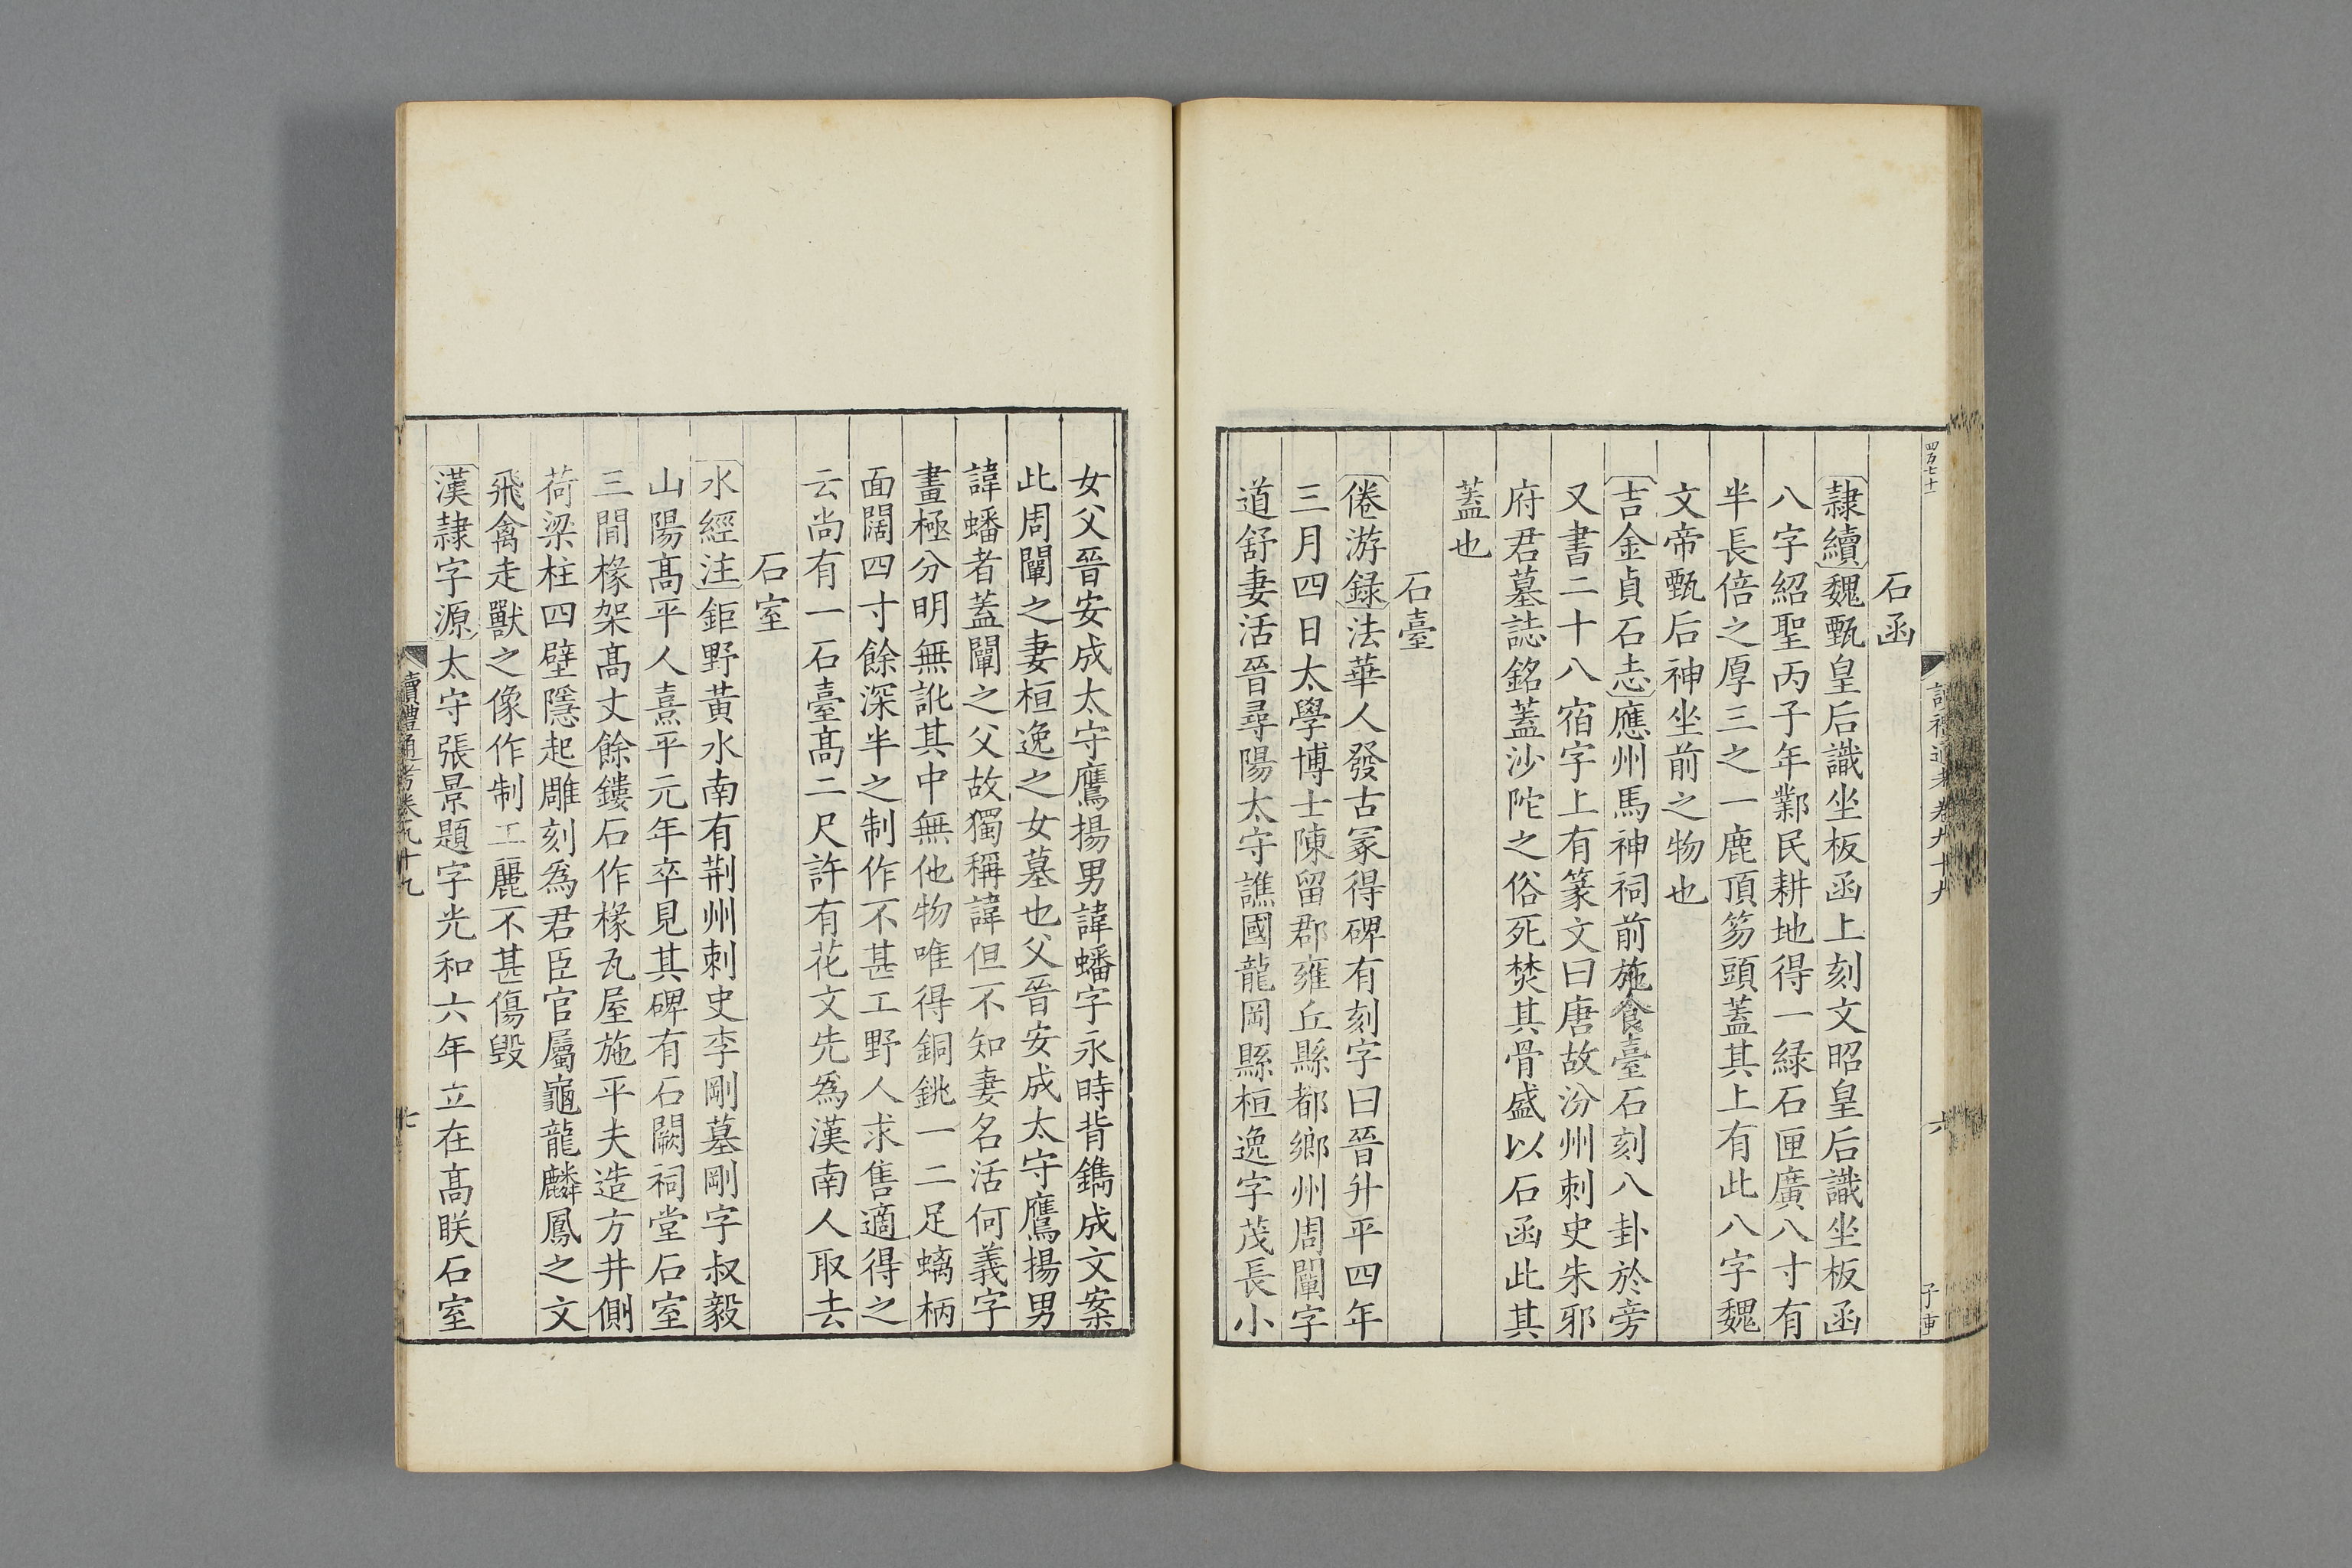 四万七十一
讀禮通考卷九十九
六
石函
隷續魏甄皇后識坐板函上刻文昭皇后識坐板函
八字紹聖丙子年鄴民耕地得一緑石匣廣八寸有
半長倍之厚三之一鹿頂笏頭蓋其上有此八字魏
文帝甄后神坐前之物也
吉金貞石志應州馬神祠前施食臺石刻八卦於旁
又書二十八宿字上有篆文曰唐故汾州刺史朱邪
府君墓誌銘蓋沙陀之俗死焚其骨盛以石函此其
蓋也
石臺
倦游録法華人發古冢得碑有刻字曰晉升平四年
三月四日太學博士陳留郡雍丘縣都鄉州周闡字
道舒妻活晉尋陽太守譙國龍岡縣桓逸字茂長小
女父晉安成太守鷹揚男諱蟠字永時背鐫成文案
此周闡之妻桓逸之女墓也父晉安成太守鷹揚男
諱蟠者蓋闡之父故獨稱諱但不知妻名活何義字
畫極分明無訛其中無他物唯得銅銚一二足螭柄
面闊四寸餘深半之制作不甚工野人求售適得之
云尚有一石臺髙二尺許有花文先爲漢南人取去
石室
水經注鉅野黃水南有荆州刺史李剛墓剛字叔毅
山陽髙平人熹平元年卒見其碑有石闕祠堂石室
三間椽架髙丈餘鏤石作椽瓦屋施平夫造方井側
荷梁柱四壁隱起雕刻爲君臣官屬龜龍麟鳳之文
飛禽走獸之像作制工麗不甚傷毀
漢隷字源太守張景題字光和六年立在髙朕石室
讀禮通考卷九十九
七